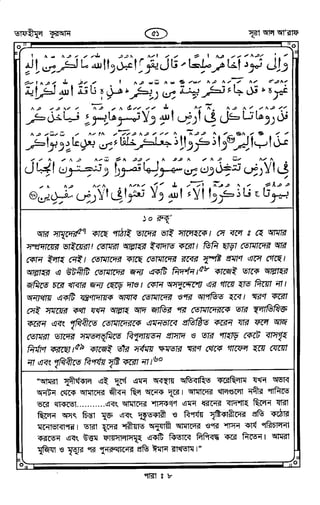 তাফহীমুল কুরআন ৫১ সূরা আল আ'রাফ
وَإِلَىٰ ثَمُودَ أَخَاهُمْ صَٰلِحًا ۘ قَالَ يَٰقَوْمِ اعْبُدُوا اللَّهَ مَا لَكُمْ مِّنْ إِلَٰهٍ
غَيْرُهُ ۖ قَدْ جَاءَتْكُمْ بَيِّنَةٌ مِّنْ رَّبِّكُمْ ۖ هَٰذِهِ نَاقَةُ اللَّهِ لَكُمْ آيَةً
فَذَرُوهَا تَأْكُلْ فِي أَرْضِ اللَّهِ وَلَا تَمَسُّوهَا بِسُوءٍ فَيَأْخُذَكُمْ
عَذَابٌ أَلِيمٌ وَاذْكُرُوا إِذْ جَعَلَكُمْ خُلَفَاءَ مِنْ بَعْدِ عَادٍ وَبَوَّأَكُمْ
فِي الْأَرْضِ تَتَّخِذُونَ مِنْ سُهُولِهَا قُصُورًا وَتَنْحِتُونَ الْجِبَالَ
بُيُوتًا ۖ فَاذْكُرُوا آلَاءَ اللَّهِ وَلَا تَعْثَوْا فِي الْأَرْضِ مُفْسِدِينَ
১০ রুকূ'
আর সামূদের৫৭ কাছে পাঠাই তাদের ভাই সালেহকে। সে বলে ঃ হে আমার
সম্প্রদায়ের ভাইয়েরা! তোমরা আল্লাহর ইবাদাত করো। তিনি ছাড়া তোমাদের আর
কোন ইলাহ নেই। তোমাদের কাছে তোমাদের রবের সুস্পষ্ট প্রমাণ এসে গেছে।
আল্লাহর এ উটনীটি তোমাদের জন্য একটি নিদর্শন।৫৮ কাজেই তাকে আল্লাহর
জমিতে চরে খাবার জন্য ছেড়ে দাও। কোন অসদুদ্দেশ্যে এর গায়ে হাত দিয়ো না।
অন্যথায় একটি যন্ত্রণাদায়ক আযাব তোমাদের ওপর আপতিত হবে। স্মরণ করো
সেই সময়ের কথা যখন আল্লাহ আদ জাতির পর তোমাদেরকে তার স্থলাভিষিক্ত
করেন এবং পৃথিবীতে তোমাদেরকে এমনভাবে প্রতিষ্ঠিত করেন যার ফলে আজ
তোমরা তাদের সমতলভূমিতে বিপুলায়তন প্রাসাদ ও তার পাহাড় কেটে বাসগৃহ
নির্মাণ করছো।৫৯ কাজেই তাঁর সর্বময় ক্ষমতার স্মরণ থেকে গাফেল হয়ে যেয়ো
না এবং পৃথিবীতে বিপর্যয় সৃষ্টি করো না।৬০
"আমরা সুদীর্ঘকাল এই দুর্গে এমন অবস্থায় অতিবাহিত করেছিলাম যখন অভাব
অনটন থেকে আমাদের জীবন ছিল অনেক দূরে। আমাদের খালগুলো নদীর পানিতে
ভরে থাকতো...........এবং আমাদের শাসকগণ এমন ধরনের বাদশাহ ছিলেন যারা
ছিলেন অসৎ চিন্তা মুক্ত এবং দুষ্কৃতকারী ও বিপর্যয় সৃষ্টিকারীদের প্রতি কঠোর
মনোভাবাপন্ন। তারা হূদের শরীয়াত অনুযায়ী আমাদের ওপর শাসন কার্য পরিচালনা
করতেন এবং উত্তম ফায়সালাসমূহ একটি কিতাবে লিপিবদ্ধ করে নিতেন। আমরা
মুজিযা ও মৃত্যুর পর পুনরুত্থানের প্রতি ঈমান রাখতাম।"
পারা ঃ ৮